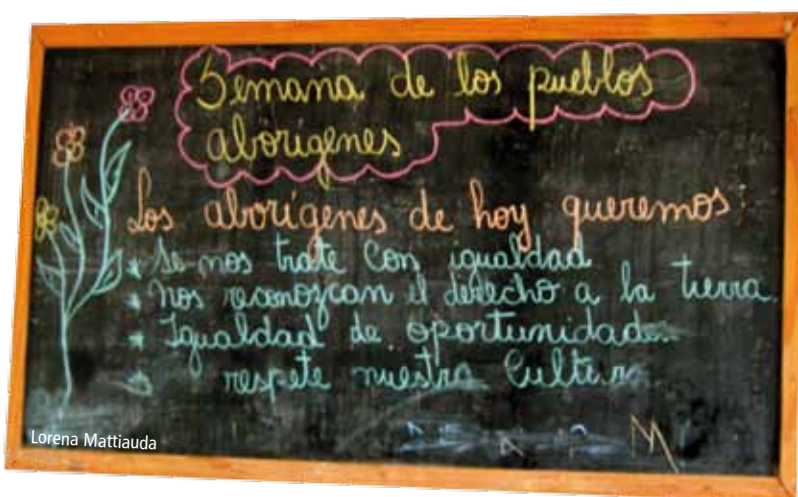 Semana de los pueblos
aborigenes
Los aborígenes de hoy queremos:
* Se nos trate con igualdad
* Nos reconozcan el derecho a la tierra.
* Igualdad de oportunidades.
respete nuestra Cultura.
Lorena Mattiauda